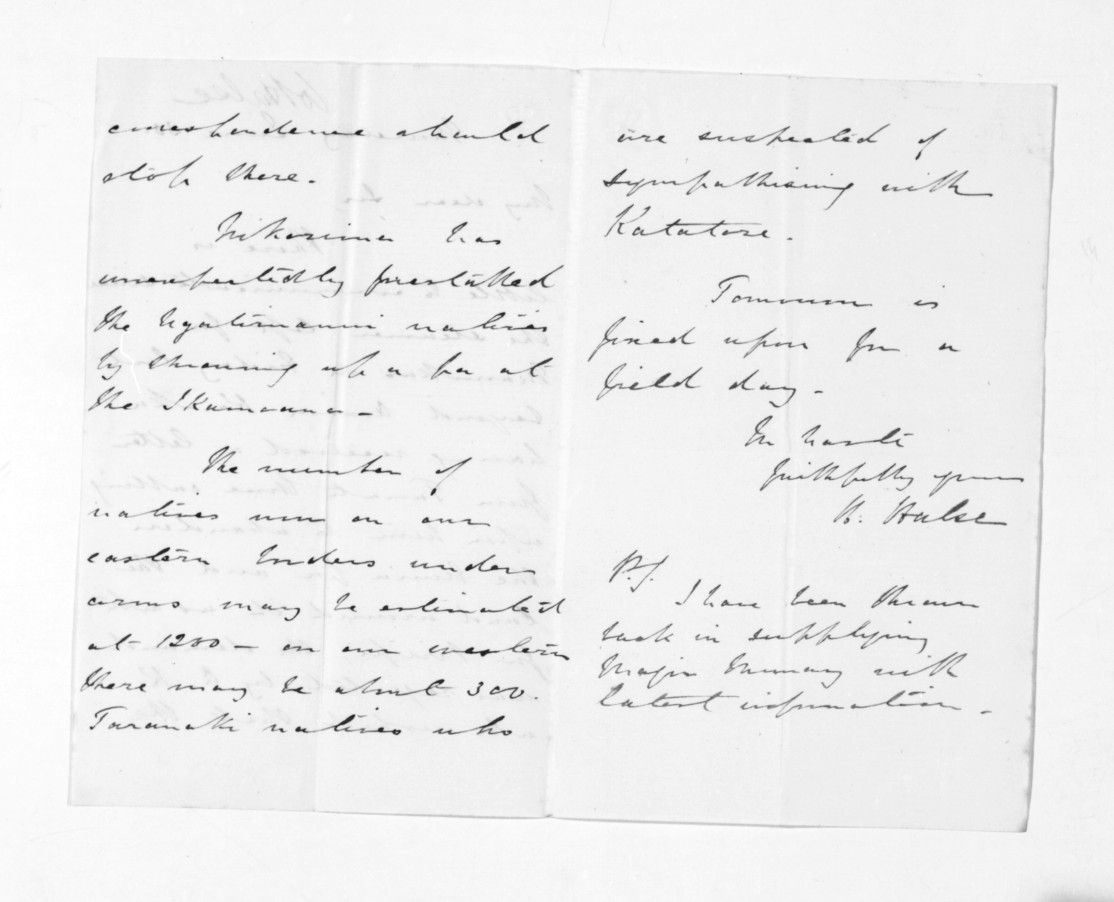 correspondence should
stop there.
Nikorima has
unexpectedly forestalled
the Ngatimaniri natives
by throwing up a pa at
the Ikamoana -
The number of
natives now on our
eastern borders under
arms may be estimated
at 1200 - on our western
there may be about 300.
Taranaki natives who
are suspected of
sympathising with
Katatore.
Tomorrow is
fixed upon for a
field day.
In haste
faithfully yours
H. Halse
P.S.
I have been thrown
back in supplying
Major Murray with
latest information.